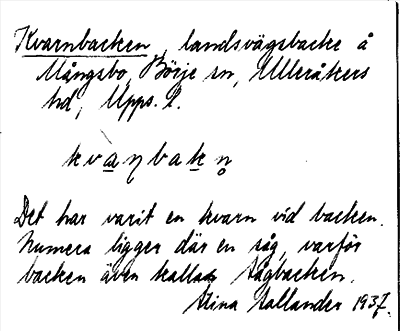 Kvarnbacken, landsvägsbacke å
Mångsbo, Börje sn, Ulleråkers
hd, Upps. l.
kvaɳbakn̥
Det har varit en kvarn vid backen.
Numera ligger där en såg, varför
backen även kallas Sågbacken.
Stina Hallander 1937.